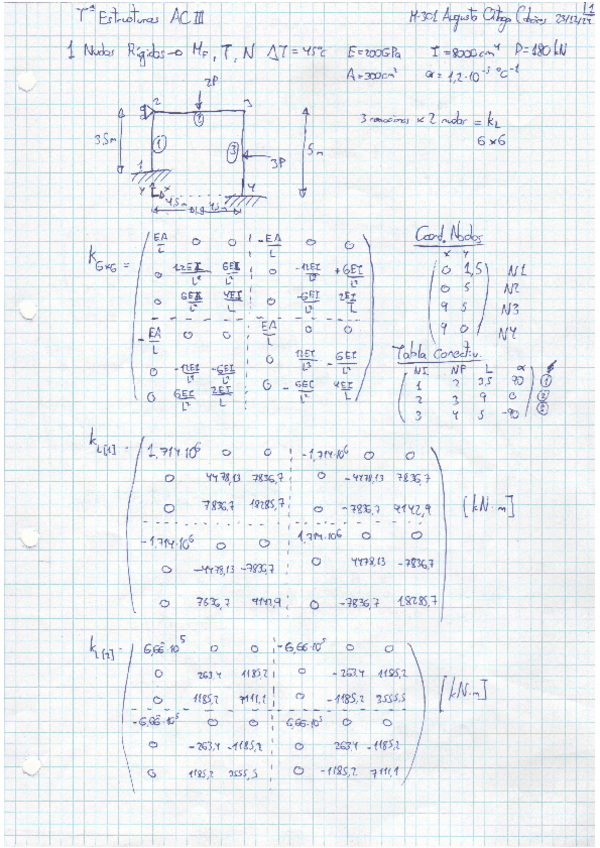 Tª Estructuras AC III
M-301 Augusto 23/12/24 1
1 Nudos Rígidos → M_F, T, N ΔT = 45ºC E = 200 GPa I = 8000 cm⁴ P = 180 kN
A = 300 cm² α = 1,2·10⁻⁵ ºC⁻¹
2P
2 3
② 3 reacciones × 2 nudos = k_L
6×6
3.5m ① ③ 5m
3P
1 4
Y X
4.5m 4.5m
Coord. Nodos
X Y
0 1,5 N1
0 5 N2
9 5 N3
9 0 N4
k_6×6 =
EA/L 0 0 -EA/L 0 0
0 12EI/L³ 6EI/L² 0 -12EI/L³ +6EI/L²
0 6EI/L² 4EI/L 0 -6EI/L² 2EI/L
-EA/L 0 0 EA/L 0 0
0 -12EI/L³ -6EI/L² 0 12EI/L³ -6EI/L²
0 6EI/L² 2EI/L 0 -6EI/L² 4EI/L
Tabla Conectiv.
NI NF L α
1 2 3,5 90 ①
2 3 9 0 ②
3 4 5 -90 ③
k_L[1] =
1,714·10⁶ 0 0 -1,714·10⁶ 0 0
0 4478,13 7836,7 0 -4478,13 7836,7
0 7836,7 18285,7 0 -7836,7 9142,9
-1,714·10⁶ 0 0 1,714·10⁶ 0 0
0 -4478,13 -7836,7 0 4478,13 -7836,7
0 7836,7 9142,9 0 -7836,7 18285,7
[kN·m]
k_L[2] =
6,66·10⁵ 0 0 -6,66·10⁵ 0 0
0 263,4 1185,2 0 -263,4 1185,2
0 1185,2 7111,1 0 -1185,2 3555,5
-6,66·10⁵ 0 0 6,66·10⁵ 0 0
0 -263,4 -1185,2 0 263,4 -1185,2
0 1185,2 3555,5 0 -1185,2 7111,1
[kN·m]